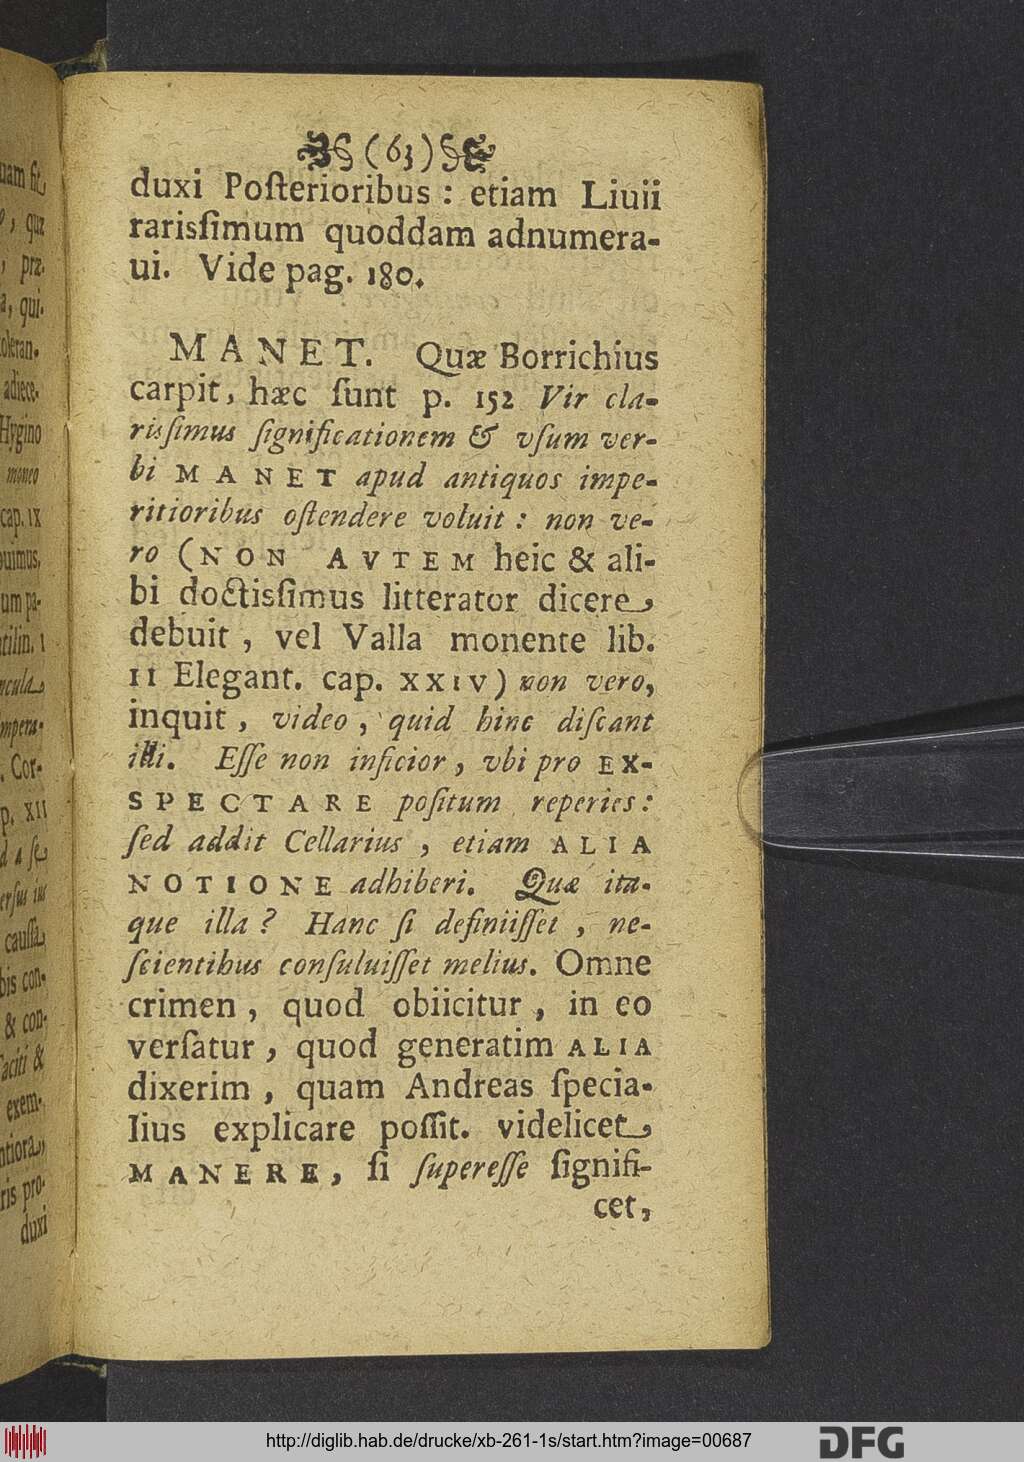 (63)
duxi Poſterioribus : etiam Liuii
rarisſimum quoddam adnumera-
ui. Vide pag. 180.
MANET. Quæ Borrichius
carpit, hæc ſunt p. 152 Vir cla-
risſimus ſignificationem & vſum ver-
bi MANET apud antiquos impe-
ritioribus oſtendere voluit : non ve-
ro (NON AVTEM heic & ali-
bi doctisſimus litterator dicere,
debuit, vel Valla monente lib.
II Elegant. cap. XXIV) non vero,
inquit, video, quid hinc diſcant
illi. Eſſe non inficior, vbi pro EX-
SPECTARE poſitum reperies:
ſed addit Cellarius, etiam ALIA
NOTIONE adhiberi. Quæ ita-
que illa? Hanc ſi definiiſſet, ne-
ſcientibus conſuluiſſet melius. Omne
crimen, quod obiicitur, in eo
verſatur, quod generatim ALIA
dixerim, quam Andreas ſpecia-
lius explicare poſſit. videlicet,
MANERE, ſi ſupereſſe ſignifi-
cet,
uam ſit
, quæ
, præ-
a, qui-
oleran-
adiece-
Hygino
moneo
cap. IX
um pa-
. Cor-
p. XII
cauſſa,
bis con-
& con-
Taciti &
exem-
ris pro-
duxi
http://diglib.hab.de/drucke/xb-261-1s/start.htm?image=00687
DFG